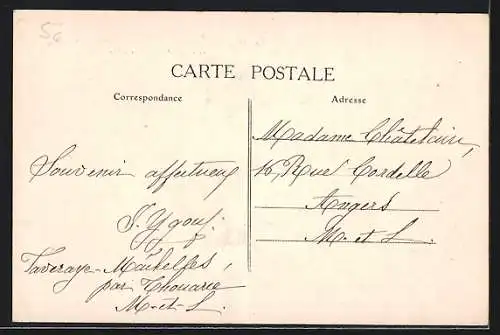 56
CARTE POSTALE
Correspondance
Adresse
Souvenir affectueux
J. Ygouf.
par Thouarcé
M-et-L.
Madame Châtelain,
16, Rue Cordelle
Angers
M. et L.